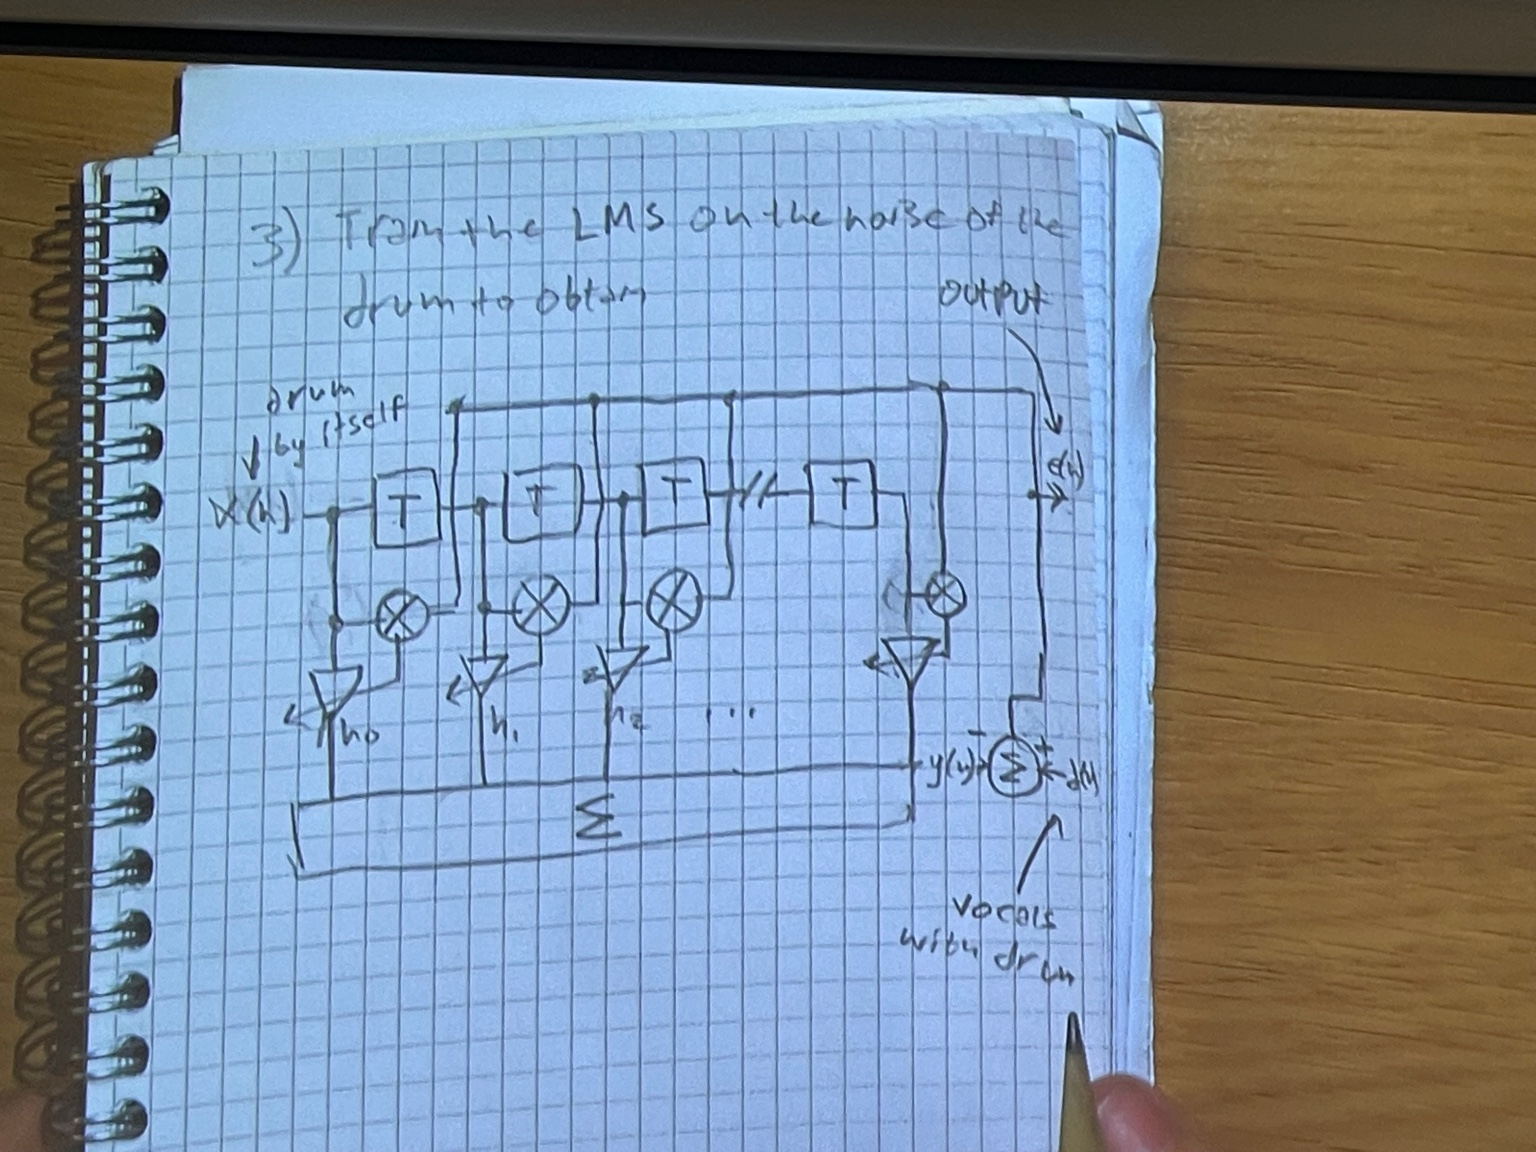 3) Train the LMS on the noise of the
drum to obtain
output
drum
by itself
x(n)
T
T
T
T
e(n)
h0
h1
h2
...
y(n)
-
Σ
+
d(n)
Σ
vocals
with drum